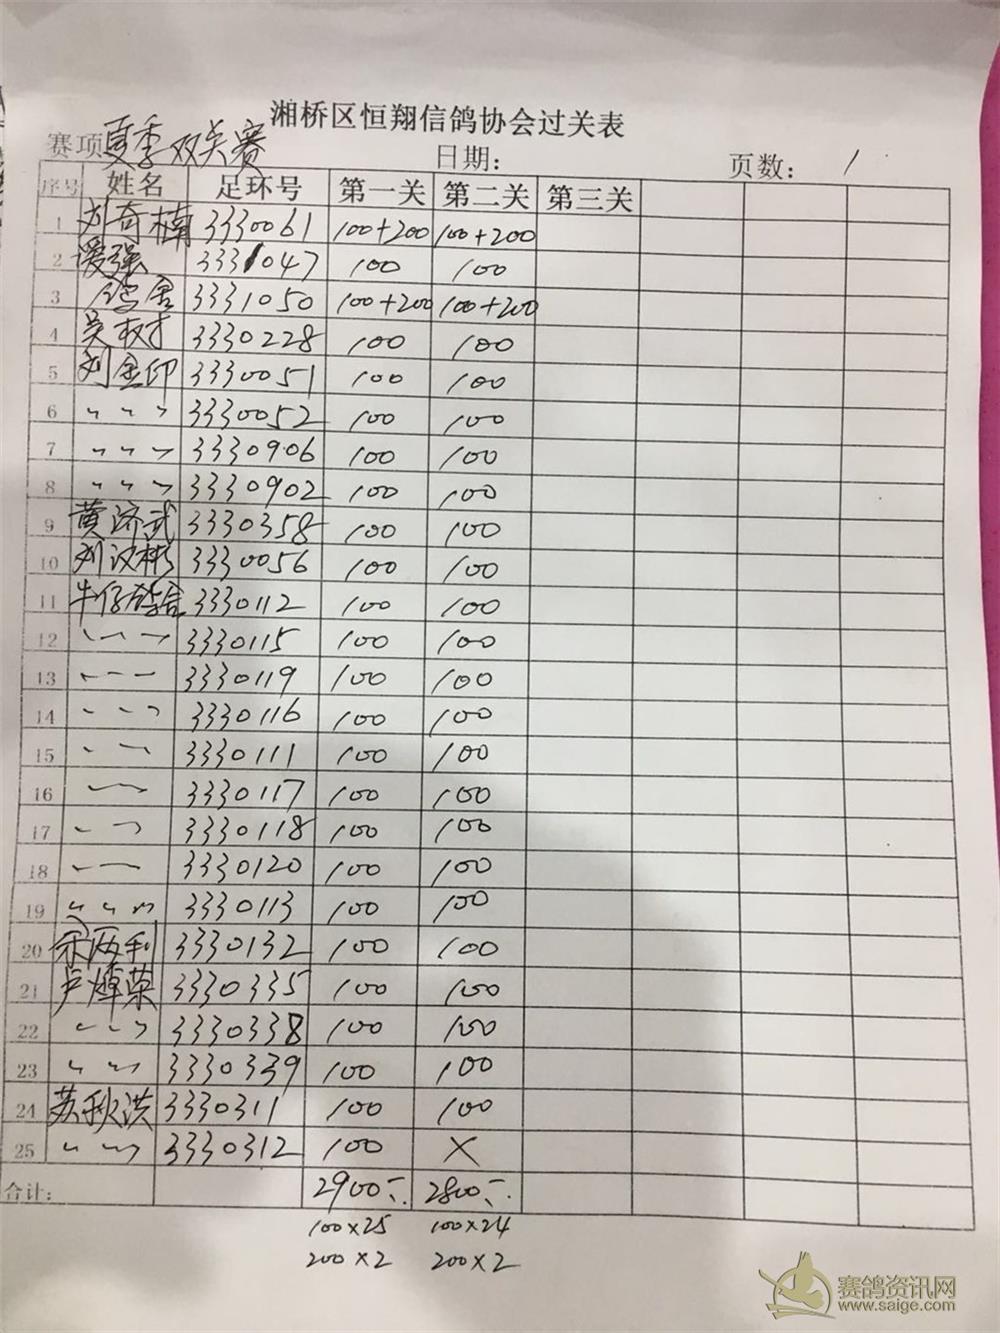 湘桥区恒翔信鸽协会过关表
赛项夏季双关赛 日期: 页数: 1
序号 姓名 足环号 第一关 第二关 第三关
1 刘奇楠 3330061 100+200 100+200
2 强 3331047 100 100
3 鸽舍 3331050 100+200 100+200
4 吴权才 3330228 100 100
5 刘金印 3330051 100 100
6 〃 〃 〃 3330052 100 100
7 〃 〃 〃 3330906 100 100
8 〃 〃 〃 3330902 100 100
9 黄济武 3330358 100 100
10 刘汉彬 3330056 100 100
11 牛仔鸽舍 3330112 100 100
12 〃 〃 〃 3330115 100 100
13 〃 〃 〃 3330119 100 100
14 〃 〃 〃 3330116 100 100
15 〃 〃 3330111 100 100
16 〃 〃 3330117 100 100
17 〃 〃 3330118 100 100
18 〃 〃 3330120 100 100
19 〃 〃 〃 3330113 100 100
20 余两利 3330132 100 100
21 卢焯荣 3330335 100 100
22 〃 〃 〃 3330338 100 100
23 〃 〃 〃 3330339 100 100
24 苏秋洪 3330311 100 100
25 〃 〃 〃 3330312 100 ×
合计: 2900 2800
100×25 100×24
200×2 200×2
赛鸽资讯网
www.saige.com